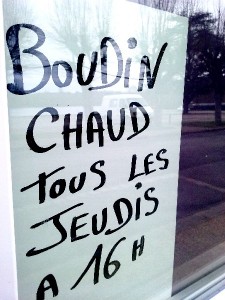 BOUDIN
CHAUD
TOUS LES
JEUDIS
A 16 H